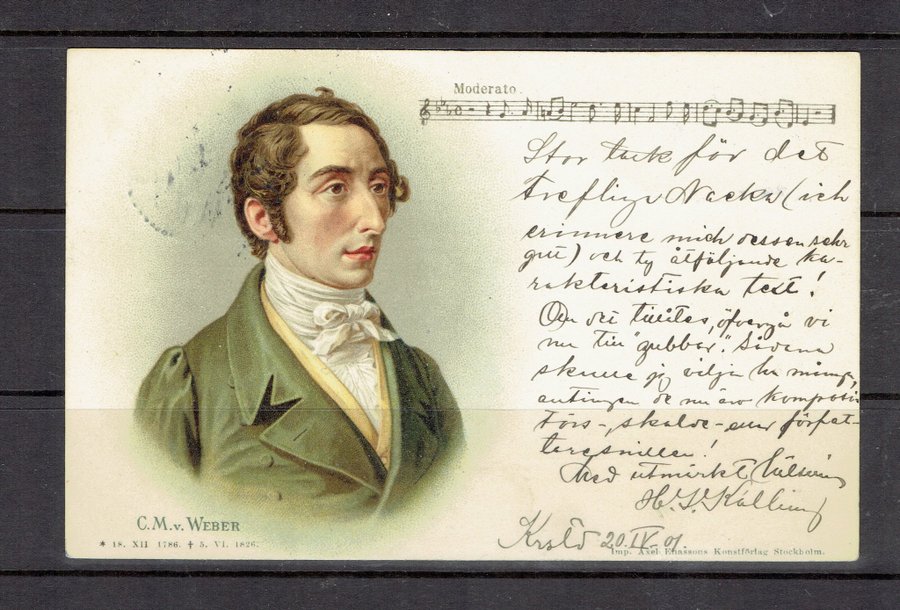 Moderato.
Stor tack för det
trefliga Nacka (ich
erinnere mich dessen sehr
gut) och ty åtföljande ka-
rakteristiska text!
Om det tillåtes, öfvergå vi
nu till "gubbar". Sådana
skulle jg vilja ha många,
antingen de nu äro komposi-
törs-, skalde- eller förfat-
taresnillen!
Med utmärkt
H. Kalling
C. M. v. WEBER
* 18. XII 1786. † 5. VI. 1826.
20.IV.01.
Imp. Axel Eliassons Konstförlag Stockholm.